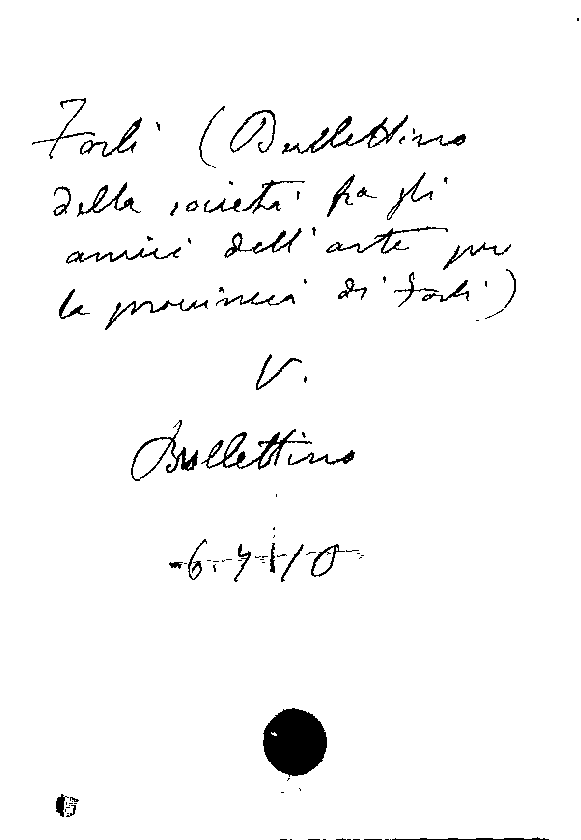 Forlì (Bullettino
della società fra gli
amici dell'arte per
la provincia di Forlì)
V.
Bullettino